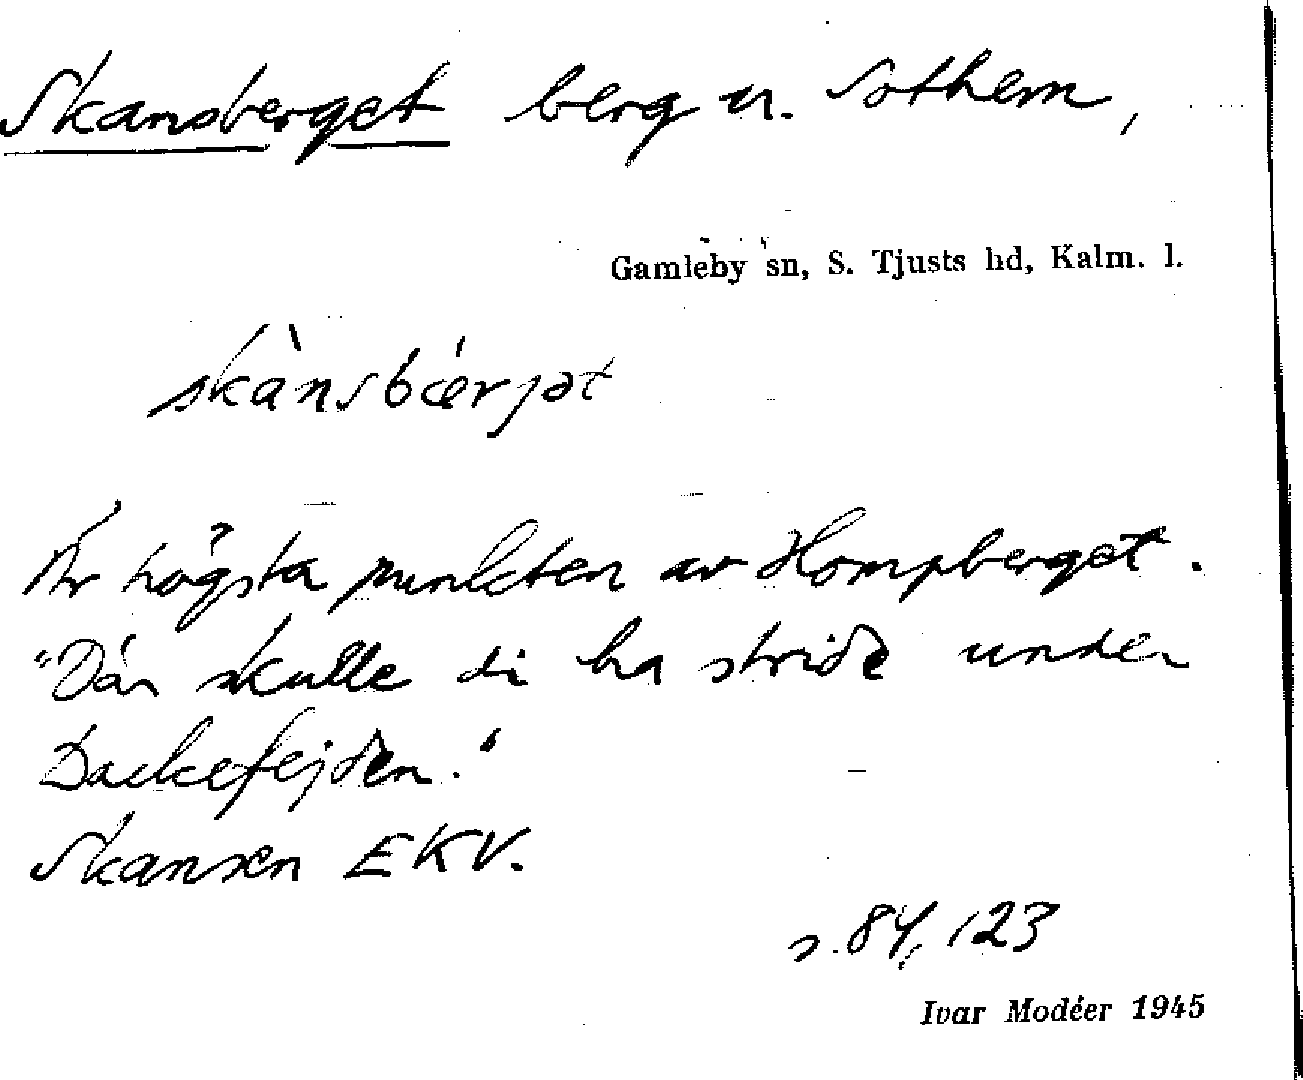 Skansberget berg u. Sothem,
Gamleby sn, S. Tjusts hd, Kalm. l.
skànsbǽrjət
Är högsta punkten av Hompberget.
"Där skulle di ha stridit under
Dackefejden."
Skansen EKV.
s. 84, 123
Ivar Modéer 1945